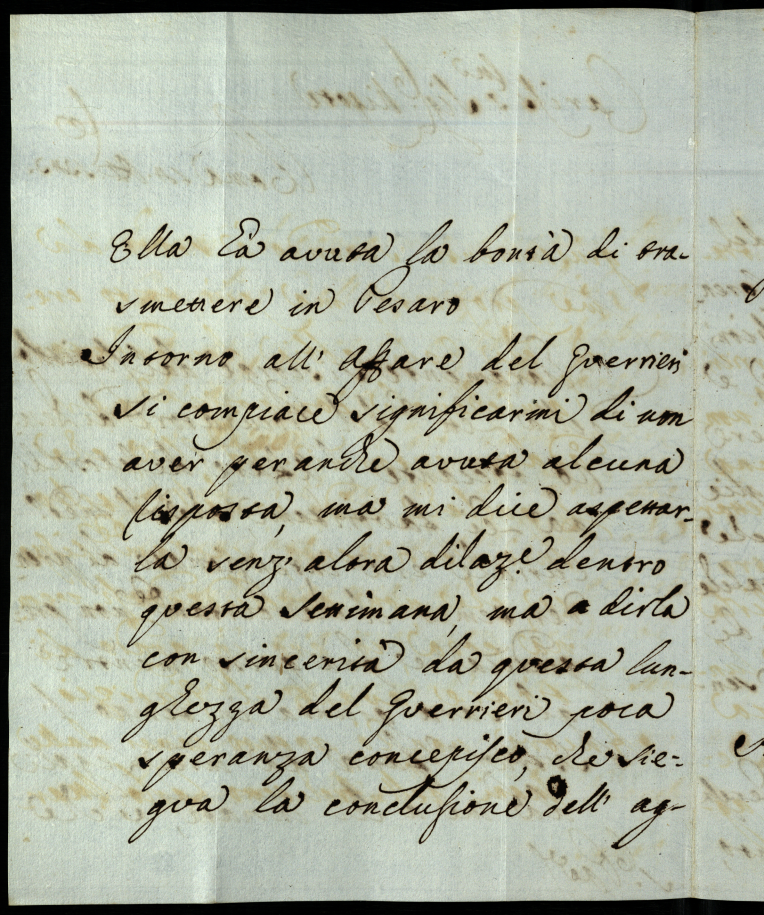 Ella hà avuta la bontà di tra-
smettere in Pesaro
Intorno all' affare del Guerrieri
si compiace significarmi di non
aver per anche avuta alcuna
risposta, ma mi dice aspettar-
la senz' altra dilaz.e dentro
questa settimana, ma a dirla
con sincerità da questa lun-
ghezza del Guerrieri poca
speranza concepisco, che sie-
gua la conclusione dell' ag-